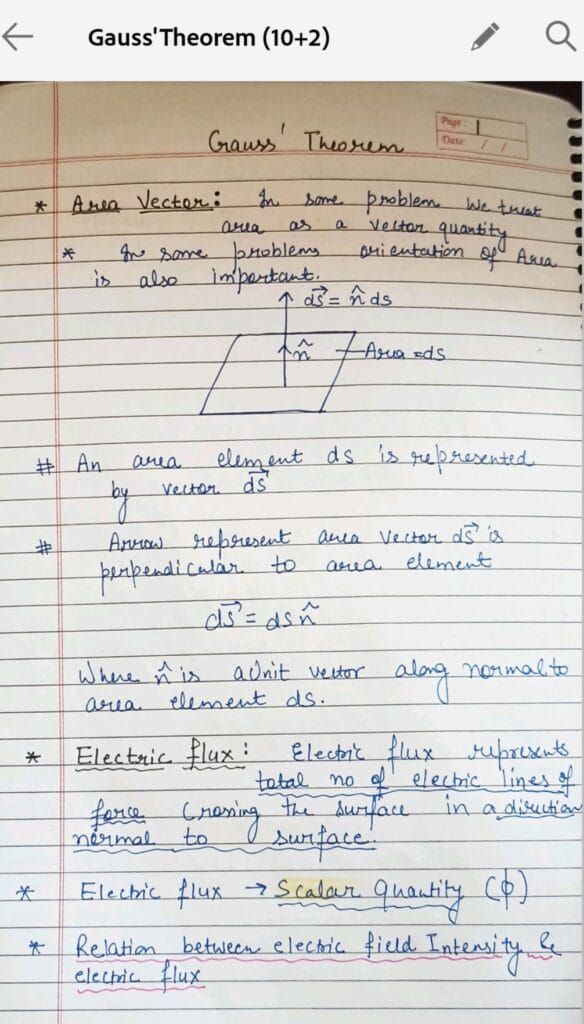 Gauss'Theorem (10+2)
Page: 1
Date: / /
Gauss' Theorem
* Area Vector: In some problem we treat
area as a vector quantity
* In some problems orientation of Area
is also important.
ds⃗ = n̂ ds
n̂ Area = ds
# An area element ds is represented
by vector ds⃗
# Arrow represent area vector ds⃗ is
perpendicular to area element
ds⃗ = ds n̂
Where n̂ is a Unit vector along normal to
area element ds.
* Electric flux: Electric flux represents
total no of electric lines of
force Crossing the surface in a direction
normal to surface.
* Electric flux → Scalar Quantity (ϕ)
* Relation between electric field Intensity &
electric flux